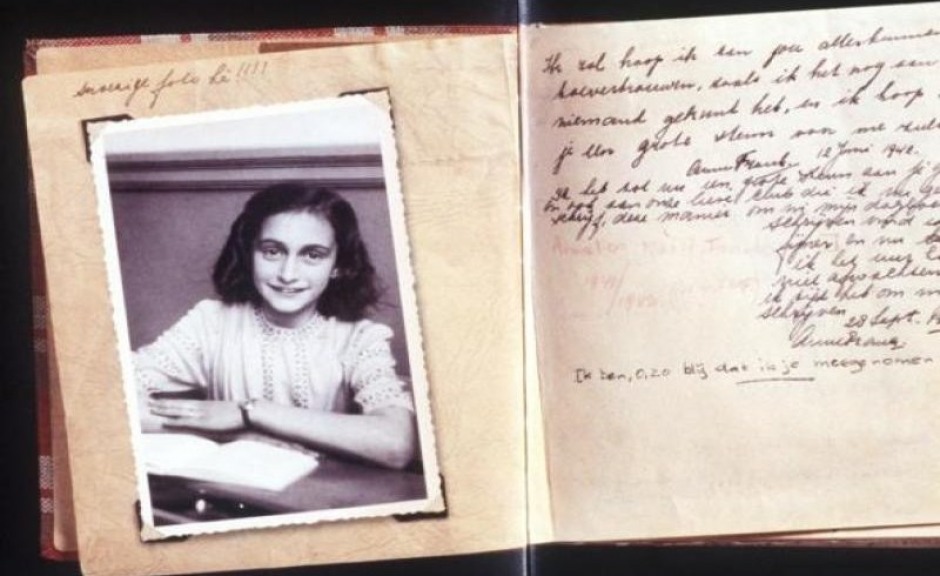 snoezige foto hè!!!!
Ik zal hoop ik aan jou alles kunnen
toevertrouwen, zoals ik het nog aan
niemand gekund heb, en ik hoop
je een grote steun voor me zult
Anne Frank. 12 Juni 1942.
Ik heb tot nu een grote steun aan je
en ook aan onze lieve club die ik nu
schrijf, deze manier om in mijn
schrijven vind
fijner en nu
ik het uur
niet afwachten
ik tijd heb om
schrijven
28 Sept.
Anne Frank.
Ik ben, o, zo blij dat ik je meegenomen